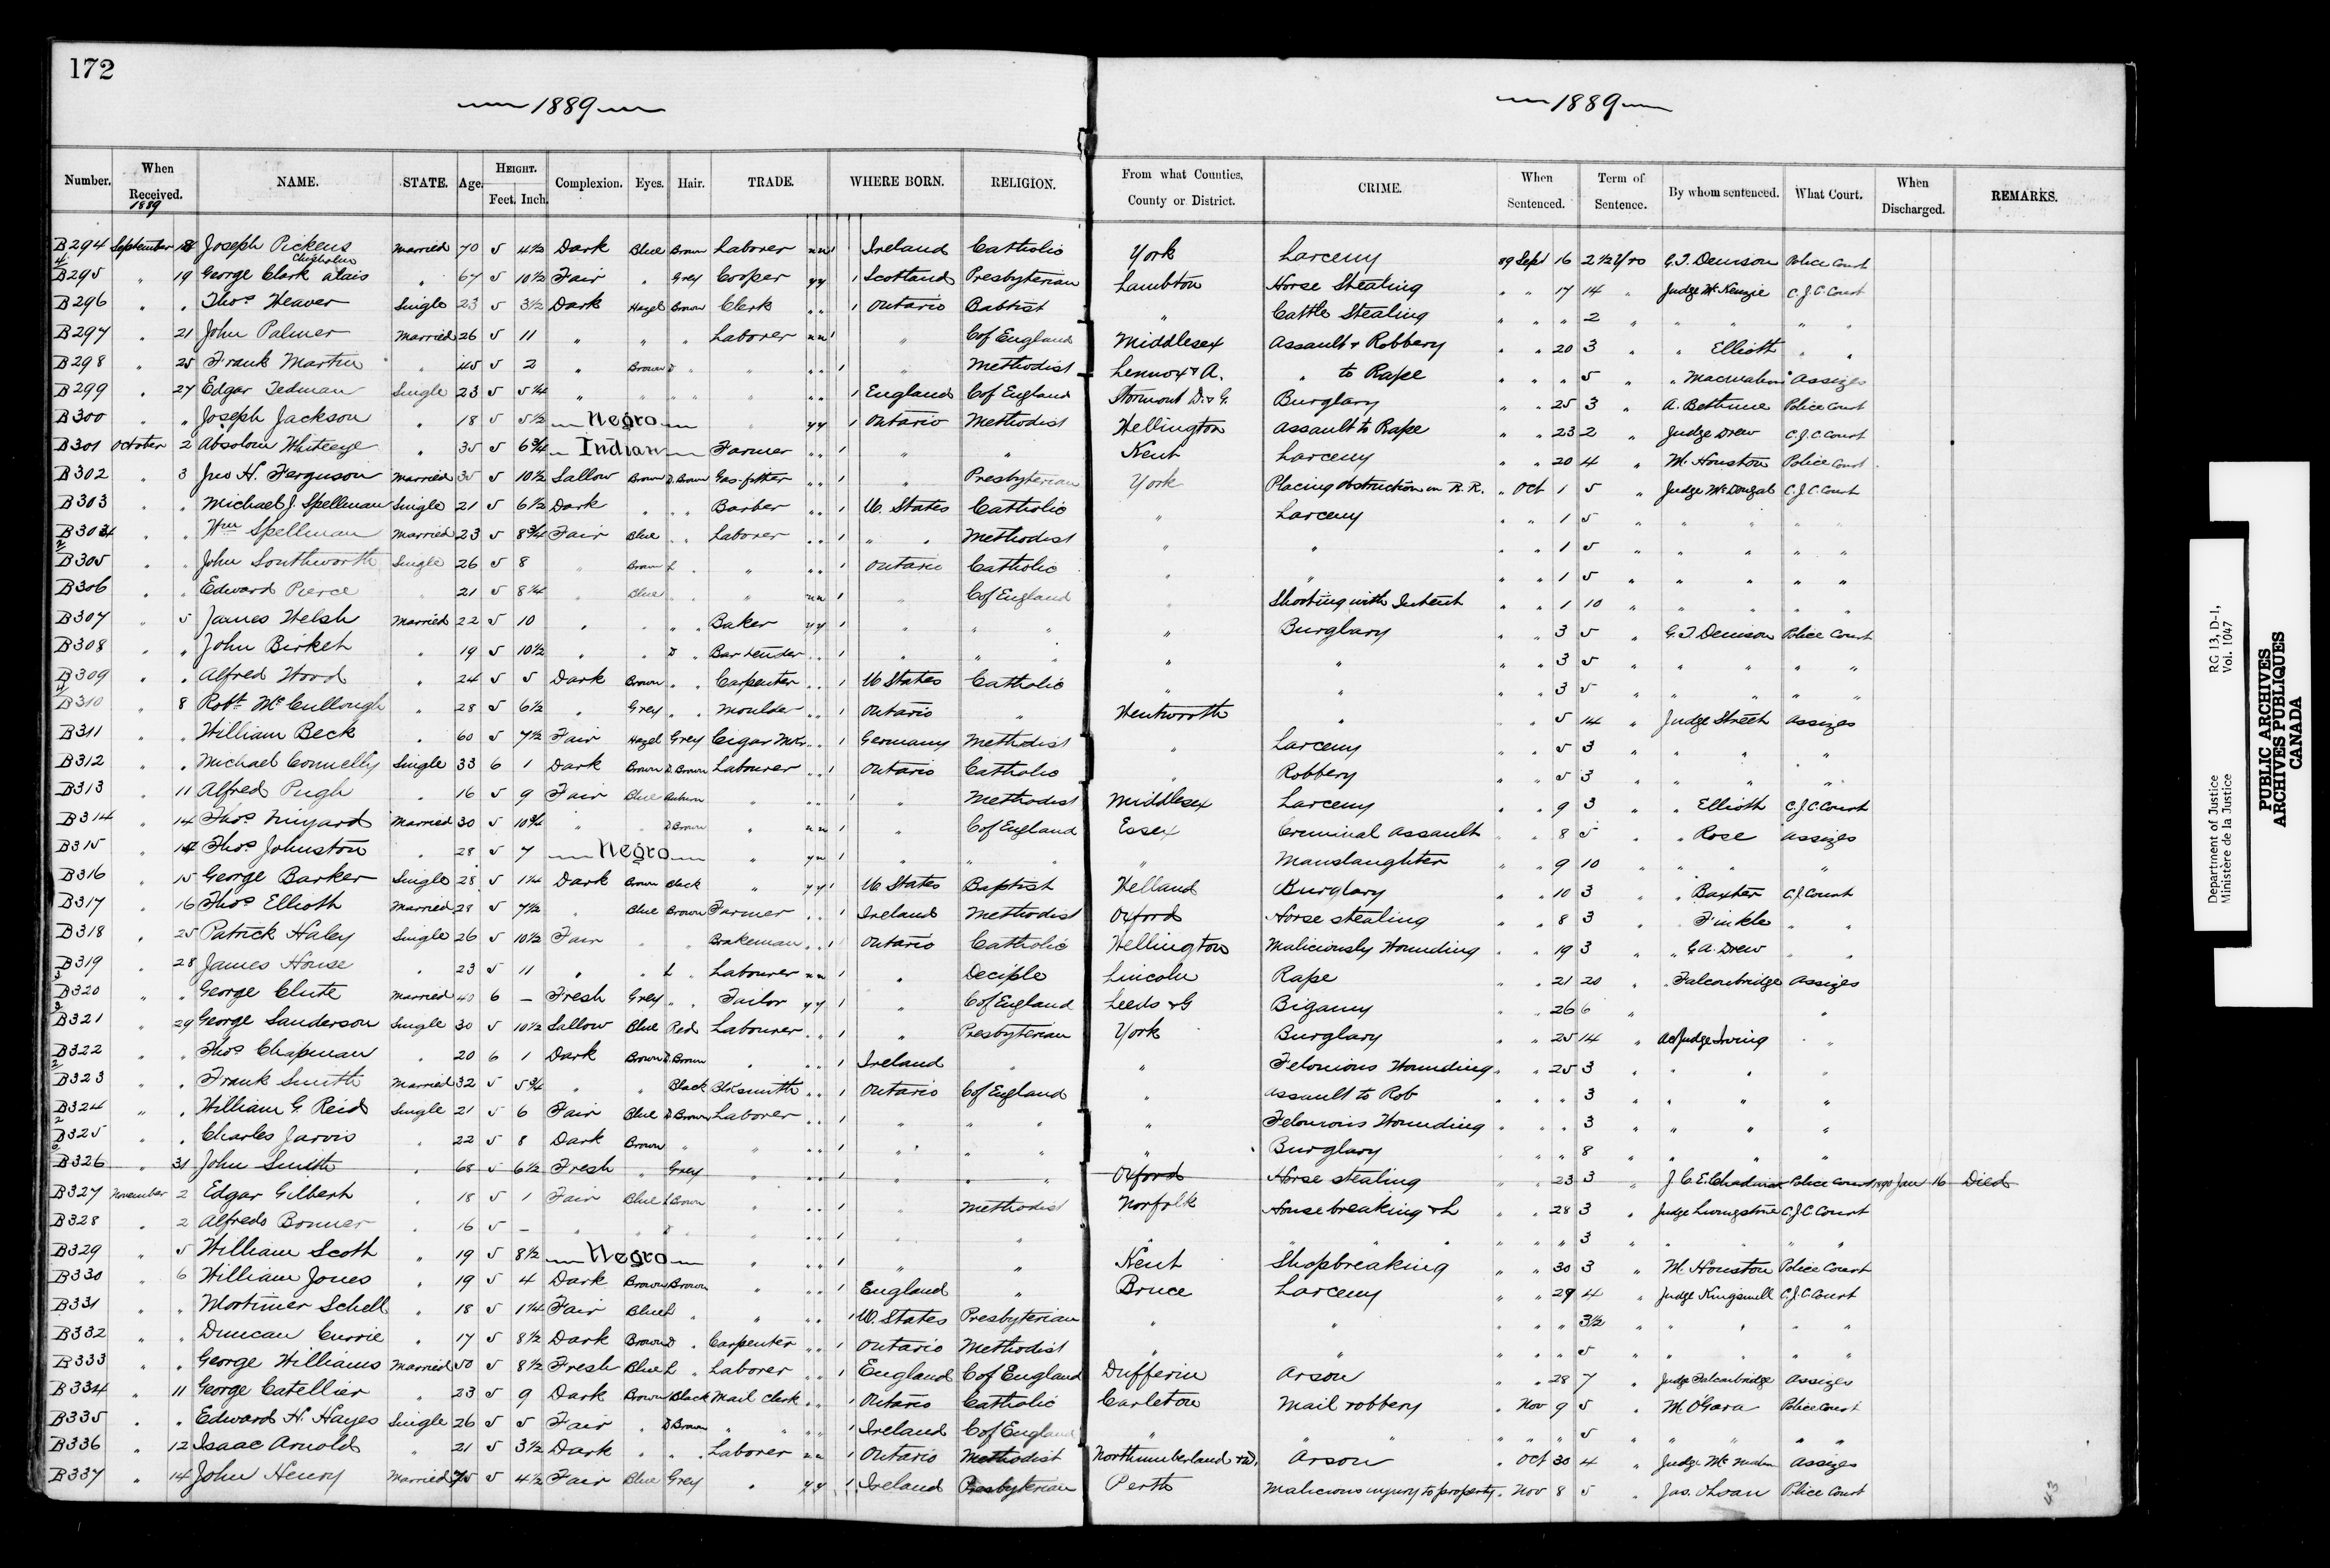 172
1889
1889
Number. When Received. NAME. STATE. Age. HEIGHT. Feet. Inch. Complexion. Eyes. Hair. TRADE. WHERE BORN. RELIGION. From what Counties, County or District. CRIME. When Sentenced. Term of Sentence. By whom sentenced. What Court. When Discharged. REMARKS.
1889
B294 September 18 Joseph Pickens Married 70 5 4½ Dark Blue Brown Laborer n n 1 Ireland Catholic York Larceny 89 Sept 16 2½ Yrs G.T. Denison Police Court
Chisholm
B295 " 19 George Clark alais " 67 5 10½ Fair " Grey Cooper y y 1 Scotland Presbyterian Lambton Horse Stealing " " 17 14 " Judge McKenzie C.J.C. Court
B296 " " Thos Weaver Single 23 5 3½ Dark Hazel Brown Clerk " " 1 Ontario Babtist " Cattle Stealing " " " 2 " " " " "
B297 " 21 John Palmer Married 26 5 11 " " " Laborer n n 1 " C of England Middlesex Assault & Robbery " " 20 3 " " Elliott " "
B298 " 25 Frank Martin " 45 5 2 " Brown D " " " 1 " Methodist Lennox & A. " to Rape " " " 5 " " Assizes
B299 " 27 Edgar Tedman Single 23 5 5¼ " " " " " " 1 England C of England Stormont D. & G. Burglary " " 25 3 " A. Bethune Police Court
B300 " " Joseph Jackson " 18 5 5½ Negro " y y 1 Ontario Methodist Wellington Assault to Rape " " 23 2 " Judge Drew C.J.C. Court
B301 October 2 Absolom Whiteeye " 35 5 6¾ Indian Farmer " " 1 " " Kent Larceny " " 20 4 " M. Houston Police Court
B302 " 3 Jno H. Ferguson Married 35 5 10½ Sallow Brown D. Brown Gas-fitter " " 1 " Presbyterian York Placing obstruction on R.R. " Oct 1 5 " Judge McDougal C.J.C. Court
B303 " " Michael J. Spellman Single 21 5 6½ Dark " " " Barber " " 1 U. States Catholic " Larceny " " 1 5 " " " " "
B304 " " Wm Spellman Married 23 5 8¾ Fair Blue " " Laborer " " 1 " " Methodist " " " " 1 5 " " " " "
B305 " " John Southworth Single 26 5 8 " Brown L " " " " 1 Ontario Catholic " " " " 1 5 " " " " "
B306 " " Edward Pierce " 21 5 8¼ " Blue " " " n n 1 " C of England " Shooting with Intent " " 1 10 " " " " "
B307 " 5 James Welsh Married 22 5 10 " " " " Baker y y 1 " " " " Burglary " " 3 5 " G.T. Denison Police Court
B308 " " John Birket " 19 5 10½ " " D " Bartender " " 1 " " " " " " " 3 5 " " " " "
B309 " " Alfred Wood " 24 5 5 Dark Brown " " Carpenter " " 1 U States Catholic " " " " 3 5 " " " " "
B310 " 8 Robt McCullough " 28 5 6½ " Grey " " Moulder " " 1 Ontario " Wentworth " " " 5 14 " Judge Street Assizes
B311 " " William Beck " 60 5 7½ Fair Hazel Grey Cigar Mkr " " 1 Germany Methodist " Larceny " " 5 3 " " " "
B312 " " Michael Connelly Single 33 6 1 Dark Brown D. Brown Labourer " " 1 Ontario Catholic " Robbery " " 5 3 " " " "
B313 " 11 Alfred Pugh " 16 5 9 Fair Blue Auburn " " " 1 " Methodist Middlesex Larceny " " 9 3 " " Elliott C.J.C Court
B314 " 14 Thos Vinyard Married 30 5 10¾ " " D Brown " n n 1 " C of England Essex Criminal Assault " " 8 5 " " Rose Assizes
B315 " 14 Thos Johnston " 28 5 7 Negro " y n 1 " " " " Manslaughter " " 9 10 " " " "
B316 " 15 George Barker Single 28 5 1¼ Dark Brown Black " y y 1 U States Baptist Welland Burglary " " 10 3 " " Baxter C.J. Court
B317 " 16 Thos Elliott Married 28 5 7½ " Blue Brown Farmer " " 1 Ireland Methodist Oxford Horse stealing " " 8 3 " " Finkle " "
B318 " 25 Patrick Haley Single 26 5 10½ Fair " " Brakeman " " 1 Ontario Catholic Wellington Maliciously Wounding " " 19 3 " " G.A. Drew " "
B319 " 28 James House " 23 5 11 " " L " Labourer n n 1 " Deciple Lincoln Rape " " 21 20 " " Falconbridge Assizes
B320 " " George Clute Married 40 6 — Fresh Grey " " Tailor y y 1 " C of England Leeds & G Bigamy " " 26 6 " "
B321 " 29 George Sanderson Single 30 5 10½ Sallow Blue Red Labourer " " 1 " Presbyterian York Burglary " " 25 14 " Act Judge Irving " "
B322 " " Thos Chapman " 20 6 1 Dark Brown D. Brown " " " 1 Ireland " " Felonious Wounding " " 25 3 " " " "
B323 " " Frank Smith Married 32 5 5¾ " " Black Blksmith " " 1 Ontario C of England " Assault to Rob " " " 3 " " " "
B324 " " William G. Reid Single 21 5 6 Fair Blue D Brown Laborer " " 1 " " " " Felonious Wounding " " " 3 " " " "
B325 " " Charles Jarvis " 22 5 8 Dark Brown " " " " 1 " " " " Burglary " " " 8 " " " "
B326 " 31 John Smith " 68 5 6½ Fresh " Grey " " " 1 " " " Oxford Horse stealing " " 23 3 " J.C.E. Police Court 1890 Jan 16 Died
B327 November 2 Edgar Gilbert " 18 5 1 Fair Blue L Brown " " " 1 " Methodist Norfolk Housebreaking & L " " 28 3 " Judge Livingstone C.J.C Court
B328 " 2 Alfred Bonner " 16 5 — " " D " " " " 1 " " " " " " " " " 3 " " " " "
B329 " 5 William Scott " 19 5 8½ Negro " " " 1 " " Kent Shopbreaking " " 30 3 " M. Houston Police Court
B330 " 6 William Jones " 19 5 4 Dark Brown Brown " " " 1 England " Bruce Larceny " " 29 4 " Judge Kingsmill C.J.C Court
B331 " " Mortimer Schell " 18 5 1¼ Fair Blue L " " " " 1 U. States Presbyterian " " " " " 3½ " " " " "
B332 " " Duncan Currie " 17 5 8½ Dark Brown D " Carpenter " " 1 Ontario Methodist " " " " " 5 " " " " "
B333 " " George Williams Married 50 5 8½ Fresh Blue L " Laborer " " 1 England C of England Dufferin Arson " " 28 7 " Judge Falconbridge Assizes
B334 " 11 George Catellier " 23 5 9 Dark Brown Black Mail Clerk " " 1 Ontario Catholic Carleton Mail robbery " Nov 9 5 " M. O'Gara Police Court
B335 " " Edward H. Hayes Single 26 5 5 Fair " D Brown " " " " 1 Ireland C of England " " " " " " 5 " " " " "
B336 " 12 Isaac Arnold " 21 5 3½ Dark " " " Laborer n n 1 Ontario Methodist Northumberland & D. Arson " Oct 30 4 " Judge Assizes
B337 " 14 John Henry Married 75 5 4½ Fair Blue Grey " y y 1 Ireland Presbyterian Perth Malicious injury to property " Nov 8 5 " Jas. Police Court
43
Department of Justice RG 13, D-1,
Ministère de la Justice Vol. 1047
PUBLIC ARCHIVES
ARCHIVES PUBLIQUES
CANADA